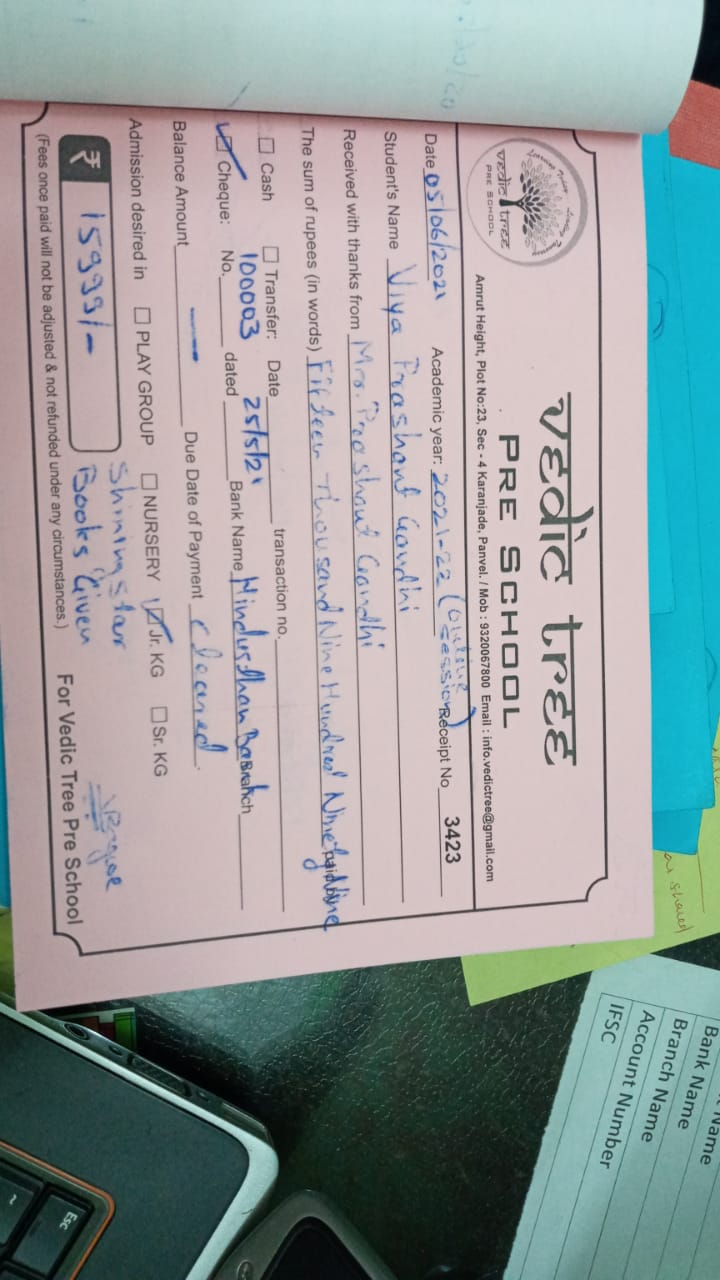 vedic tree
PRE SCHOOL
vedic tree
PRE SCHOOL
Amrut Height, Plot No:23, Sec - 4 Karanjade, Panvel. / Mob : 9320067800 Email : info.vedictree@gmail.com
Date 05/06/2021 Academic year: 2021-22 (Online Session) Receipt No 3423
Student's Name Viya Prashant Gandhi
Received with thanks from Mrs. Prashant Gandhi
The sum of rupees (in words) Fifteen Thousand Nine Hundred Ninety Nine paid by
Cash Transfer: Date transaction no.
Cheque: No. 100003 dated 25/5/21 Bank Name Hindusthan Bank Branch
Balance Amount — Due Date of Payment Cleared.
Admission desired in PLAY GROUP NURSERY Jr. KG Sr. KG
₹ 15999/- Shining Star
Books Given
(Fees once paid will not be adjusted & not refunded under any circumstances.) For Vedic Tree Pre School
Name
Bank Name
Branch Name
Account Number
IFSC
ESC